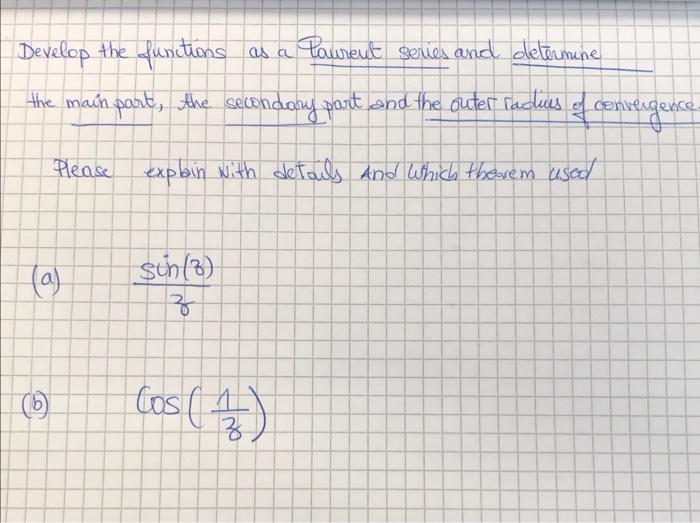 Develop the functions as a Laurent series and determine
the main part, the secondary part and the outer radius of convergence.
Please explain with details And which theorem used
(a) sin(z)/z
(b) Cos(1/z)